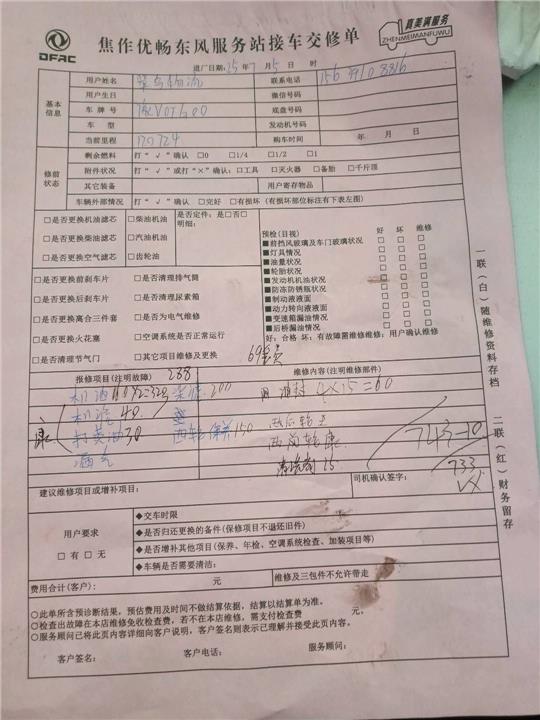 DFAC
焦作优畅东风服务站接车交修单
真美满服务
ZHENMEIMANFUWU
进厂日期: 25年7月5日 时
基本信息
用户姓名
联系电话
用户生日
微信号码
车牌号
底盘号码
车型
发动机号码
当前里程
购车时间 年 月 日
修前状态
剩余燃料 打“√”确认 □0 □1/4 □1/2 □1
附件状况 打“√”或打“×”确认: □工具 □灭火器 □备胎 □千斤顶
其它装备
用户寄存物品
车辆外部情况 打“√”确认 □完好 □有损坏 (有损坏部位标注有下表左图)
□是否更换机油滤芯 □柴油机油
□是否更换柴油滤芯 □汽油机油
□是否更换空气滤芯 □齿轮油
是否定件: 是□否□
明细:
预检(目视) 好 坏 维修
■前挡风玻璃及车门玻璃状况 □ □ □
■灯具情况 □ □ □
■油量状况 □ □ □
■轮胎状况 □ □ □
■发动机机油状况 □ □ □
■防冻防锈瓶状况 □ □ □
■制动液液面 □ □ □
■动力转向液液面 □ □ □
■变速箱漏油情况 □ □ □
■后桥漏油情况 □ □ □
好: 合格 坏: 有故障需维修维修: 用户确认维修
□是否更换前刹车片 □是否清理排气筒
□是否更换后刹车片 □是否清理尿素箱
□是否更换离合三件套 □是否为电气维修
□是否更换火花塞 □空调系统是否正常运行
□是否清理节气门 □其它项目维修及更换
报修项目(注明故障) 288
维修内容(注明维修部件)
机油
200
4×15=60
机滤 40
打黄油 30
150
15
743-10
733
司机确认签字:
建议维修项目或增补项目:
用户要求
□有 □无
◆交车时限
◆是否归还更换的备件(保修项目不退还旧件)
◆是否增补其他项目(保养、年检、空调系统检查、加装项目等)
◆车辆是否需要清洁:
费用合计(客户): 元
维修及三包件不允许带走
○此单所含预诊断结果，预估费用及时间不做结算依据，结算以结算单为准。
○检查出故障在本店维修免收检查费，若不在本店维修，需支付检查费 元。
○服务顾问已将此页内容详细向客户说明，客户签名则表示已理解并接受此页内容。
客户签名: 客户电话: 服务顾问:
一联(白)随维修资料存档
二联(红)财务留存